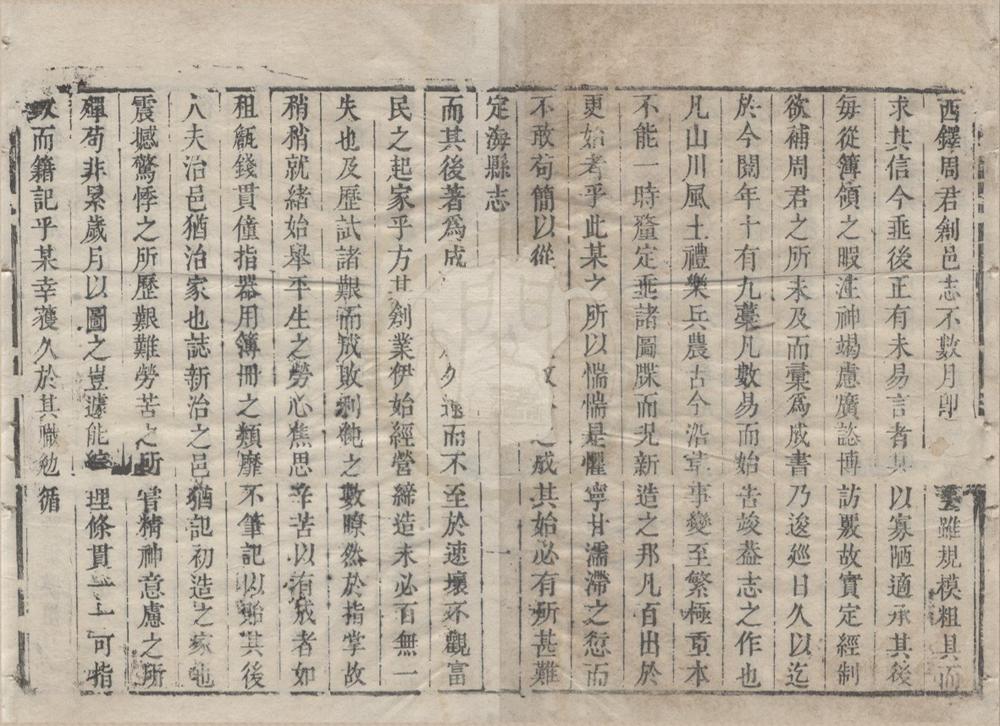 西鐸周君創邑志不數月卽 雖規模粗具而
求其信今垂後正有未易言者 以寡陋適承其後
每從簿領之暇注神竭慮廣誌博訪覈故實定經制
欲補周君之所未及而彙爲成書乃逡廵日久以迄
於今閱年十有九藁凡數易而始吿竣葢志之作也
凡山川風土禮樂兵農古今沿革事變至繁極重本
不能一時釐定垂諸圖牒而況新造之邦凡百出於
更始者乎此某之所以惴惴是懼寧甘濡滯之愆而
不敢苟簡以從 之成其始必有所甚難
定海縣志 一
而其後著爲成 久遠而不至於速壞不觀富
民之起家乎方其創業伊始經營締造未必百無一
失也及歷試諸艱而成敗利鈍之數瞭然於指掌故
稍稍就緒始舉平生之勞心焦思辛苦以有成者如
租甔錢貫僮指器用簿冊之類靡不筆記以貽其後
人夫治邑猶治家也誌新治之邑猶記初造之家也
震撼驚悸之所歷艱難勞苦之所嘗精神意慮之所
殫苟非累歲月以圖之豈遽能綜理條貫 可指
數而籍記乎某幸獲久於其職勉循